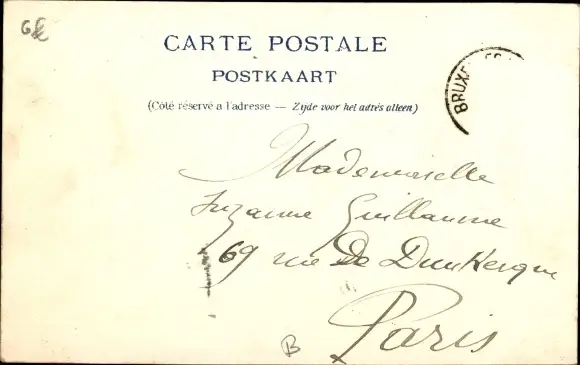 CARTE POSTALE
POSTKAART
(Côté réservé a l'adresse — Zijde voor het adres alleen)
BRUXE
Mademoiselle
Suzanne Guillaume
69 rue De Dunkerque
Paris
B